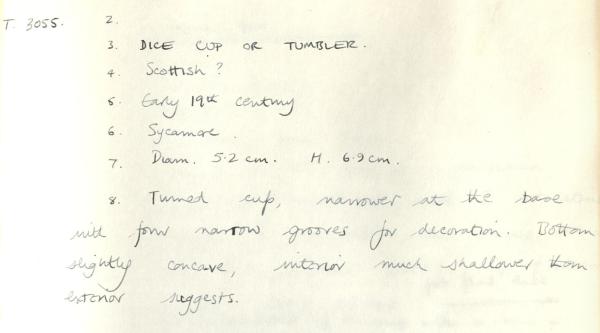 T. 3055. 2.
3. DICE CUP OR TUMBLER.
4. Scottish ?
5. Early 19th century
6. Sycamore.
7. Diam. 5.2 cm. H. 6.9 cm.
8. Turned cup, narrower at the base
with four narrow grooves for decoration. Bottom
slightly concave, interior much shallower than
exterior suggests.